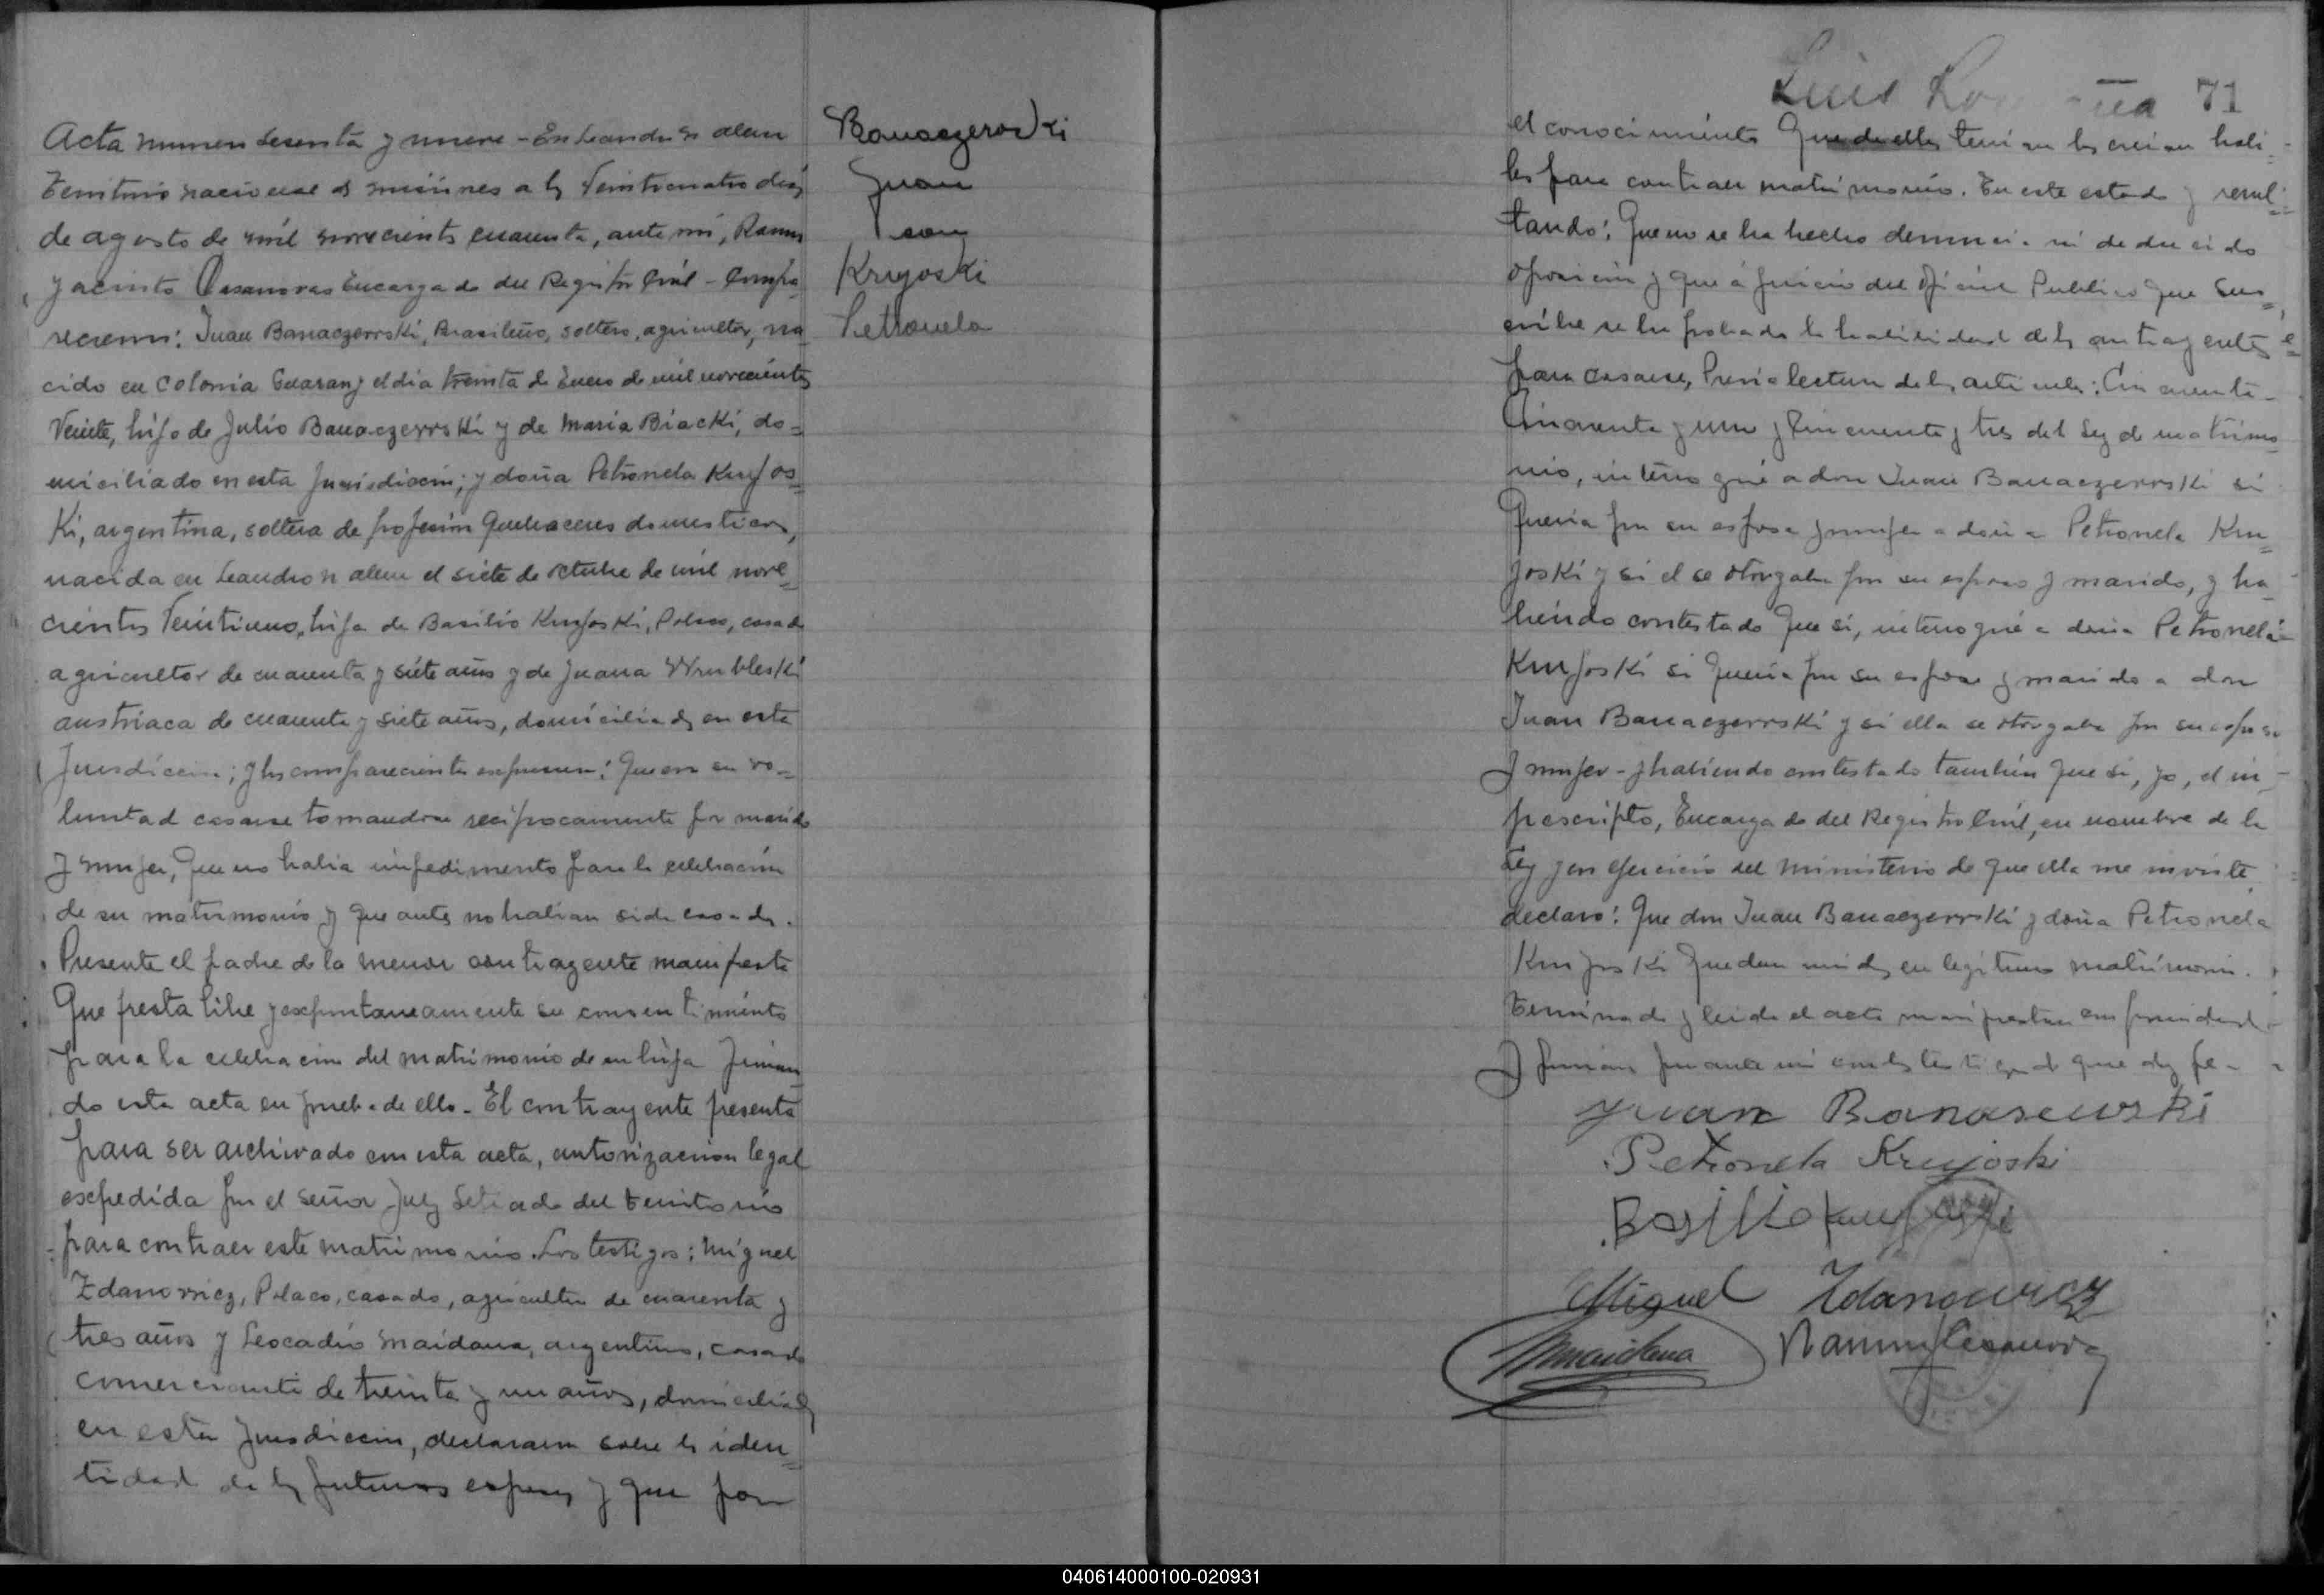 Acta numero sesenta y nueve - En Leandro N alem
territorio nacional de misiones a los Veinticuatro dias
de agosto de mil novecientos cuarenta, ante mi, Ramon
Jacinto Casanovas Encargado del Registro Civil - Compa-
recieron: Juan Banaczewski, Brasileño, soltero, agricultor, na-
cido en Colonia Guarany el dia treinta de Enero de mil novecientos
Veinte, hijo de Julio Banaczewski y de Maria Biacki, do=
miciliado en esta Jurisdiccion; y doña Petronela Krujos=
Ki, argentina, soltera de profesion Quehaceres domesticos,
nacida en Leandro n alem el siete de octubre de mil nove=
cientos Veintiuno, hija de Basilio Krujoski, Polaco, casado
agricultor de cuarenta y siete años y de Juana Wrubleski
austriaca de cuarenta y siete años, domiciliados en esta
Jurisdiccion; y los comparecientes expresaron: Que era su vo=
luntad casarse tomandose reciprocamente por marido
y mujer, Que no habia impedimento para la celebracion
de su matrimonio y que antes no habian sido casados.
Presente el padre de la menor contrayente manifesto
Que presta libre y expontaneamente su consentimiento
para la celebracion del matrimonio de su hija firman-
do esta acta en prueba de ello - El contrayente presenta
para ser archivado con esta acta, autorizacion legal
expedida por el señor Juez Letrado del territorio
para contraer este matrimonio. Los testigos: Miguel
Zdanowicz, Polaco, casado, agricultor de cuarenta y
tres años y Leocadio Maidana, argentino, casado
comerciante de treinta y un años, domiciliados
en esta Jurisdiccion, declararon sobre la iden=
tidad de los futuros esposos y que por
Banaczewski
Juan
con
Krujoski
Petronela
Luis 71
el conocimiento Que de ellos tenian los creian habi-
les para contraer matrimonio. En este estado y resul-
tando: Que no se ha hecho denuncia ni deducido
oposicion y que a juicio del Oficial Publico que sus=
cribe se ha probado la habilidad de los contrayentes
para casarse, Previa lectura de los articulos: Cincuenta -
Cincuenta y uno y Cincuenta y tres de la Ley de matrimo
nio, interrogué a don Juan Banaczewski si
Queria por su esposa y mujer a doña Petronela Kru=
joski y si el se otorgaba por su esposo y marido, y ha-
biendo contestado Que si, interrogué a doña Petronela
Krujoski si Queria por su esposo y marido a don
Juan Banaczewski y si ella se otorgaba por su esposa
y mujer - y habiendo contestado tambien Que si, yo, el in-
frascripto, Encargado del Registro Civil, en nombre de la
Ley y en ejercicio del ministerio de que ella me inviste
declaro: Que don Juan Banaczewski y doña Petronela
Krujoski Quedan unidos en legitimo matrimonio.
Terminado y leida el acta manifestaron conformidad -
y firman por ante mi con los testigos de que doy fe -
Juan Banasewski
Petronela Krujoski
Basilio Krujoski
Miguel Zdanowicz
Maidana Ramon J Casanovas
040614000100-020931